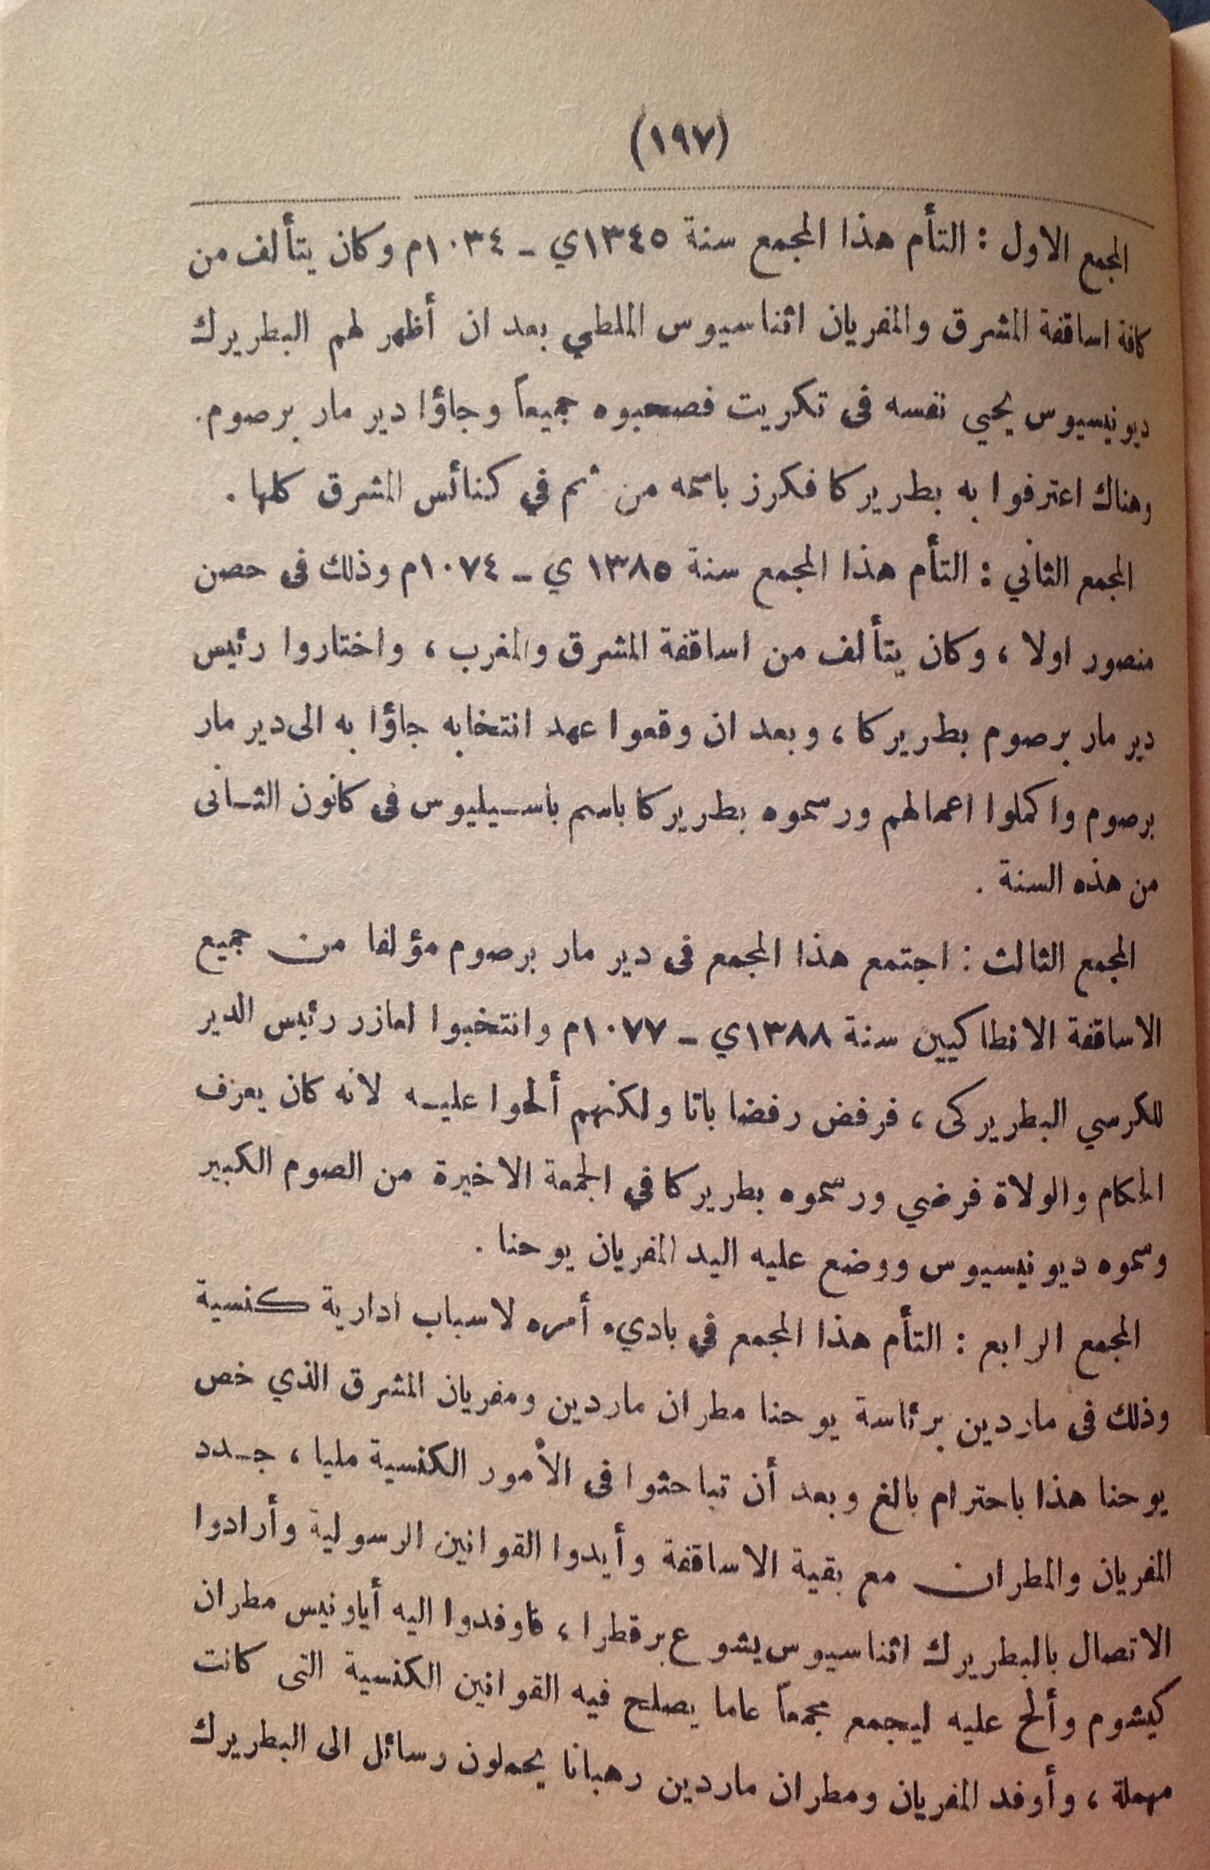 (١٩٧)
المجمع الاول : التأم هذا المجمع سنة ١٣٤٥ي ـ ١٠٣٤م وكان يتألف من
كافة اساقفة المشرق والمفريان اثناسيوس الملطي بعد ان أظهر لهم البطريرك
ديونيسيوس يحيي نفسه فى تكريت فصحبوه جميعاً وجاؤا دير مار برصوم.
وهناك اعترفوا به بطريركا فكرز باسمه من ثم في كنائس المشرق كلها .
المجمع الثاني : التأم هذا المجمع سنة ١٣٨٥ ي ـ ١٠٧٤م وذلك فى حصن
منصور اولا ، وكان يتألف من اساقفة المشرق والمغرب ، واختاروا رئيس
دير مار برصوم بطريركا ، وبعد ان وقعوا عهد انتخابه جاؤا به الى دير مار
برصوم واكملوا اعمالهم ورسموه بطريركا باسم باسـيليوس فى كانون الثـانى
من هذه السنة .
المجمع الثالث : اجتمع هذا المجمع فى دير مار برصوم مؤلفا من جميع
الاساقفة الانطاكيين سنة ١٣٨٨ي ـ ١٠٧٧م وانتخبوا لعازر رئيس الدير
للكرسي البطريركى ، فرفض رفضا باتا ولكنهم ألحوا عليـه لانه كان يعرف
الحكام والولاة فرضي ورسموه بطريركا في الجمعة الاخيرة من الصوم الكبير
وسموه ديونيسيوس ووضع عليه اليد المفريان يوحنا .
المجمع الرابع : التأم هذا المجمع في باديء أمره لاسباب ادارية كنسية
وذلك فى ماردين برئاسة يوحنا مطران ماردين ومفريان المشرق الذي خص
يوحنا هذا باحترام بالغ وبعد أن تباحثوا فى الأمور الكنسية مليا ، جـدد
المفريان والمطران مع بقية الاساقفة وأيدوا القوانين الرسولية وأرادوا
الاتصال بالبطريرك اثناسيوس يشوع برقطرا ، فاوفدوا اليه أياونيس مطران
كيشوم وألح عليه ليجمع مجمعاً عاما يصلح فيه القوانين الكنسية التى كانت
مهملة ، وأوفد المفريان ومطران ماردين رهبانا يحملون رسائل الى البطريرك